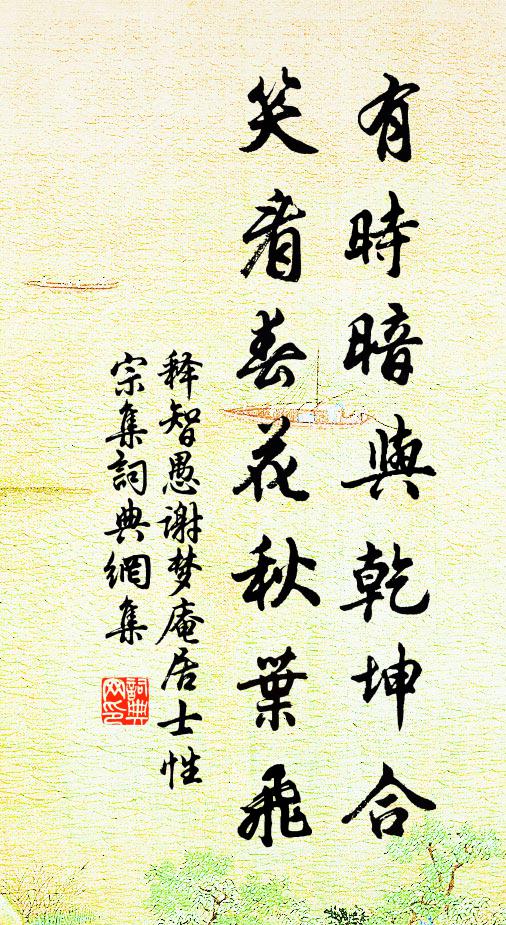 有時暗與乾坤合
笑看春花秋葉飛
释智愚谢梦庵居士性
宗集詞典網集
詞典網印